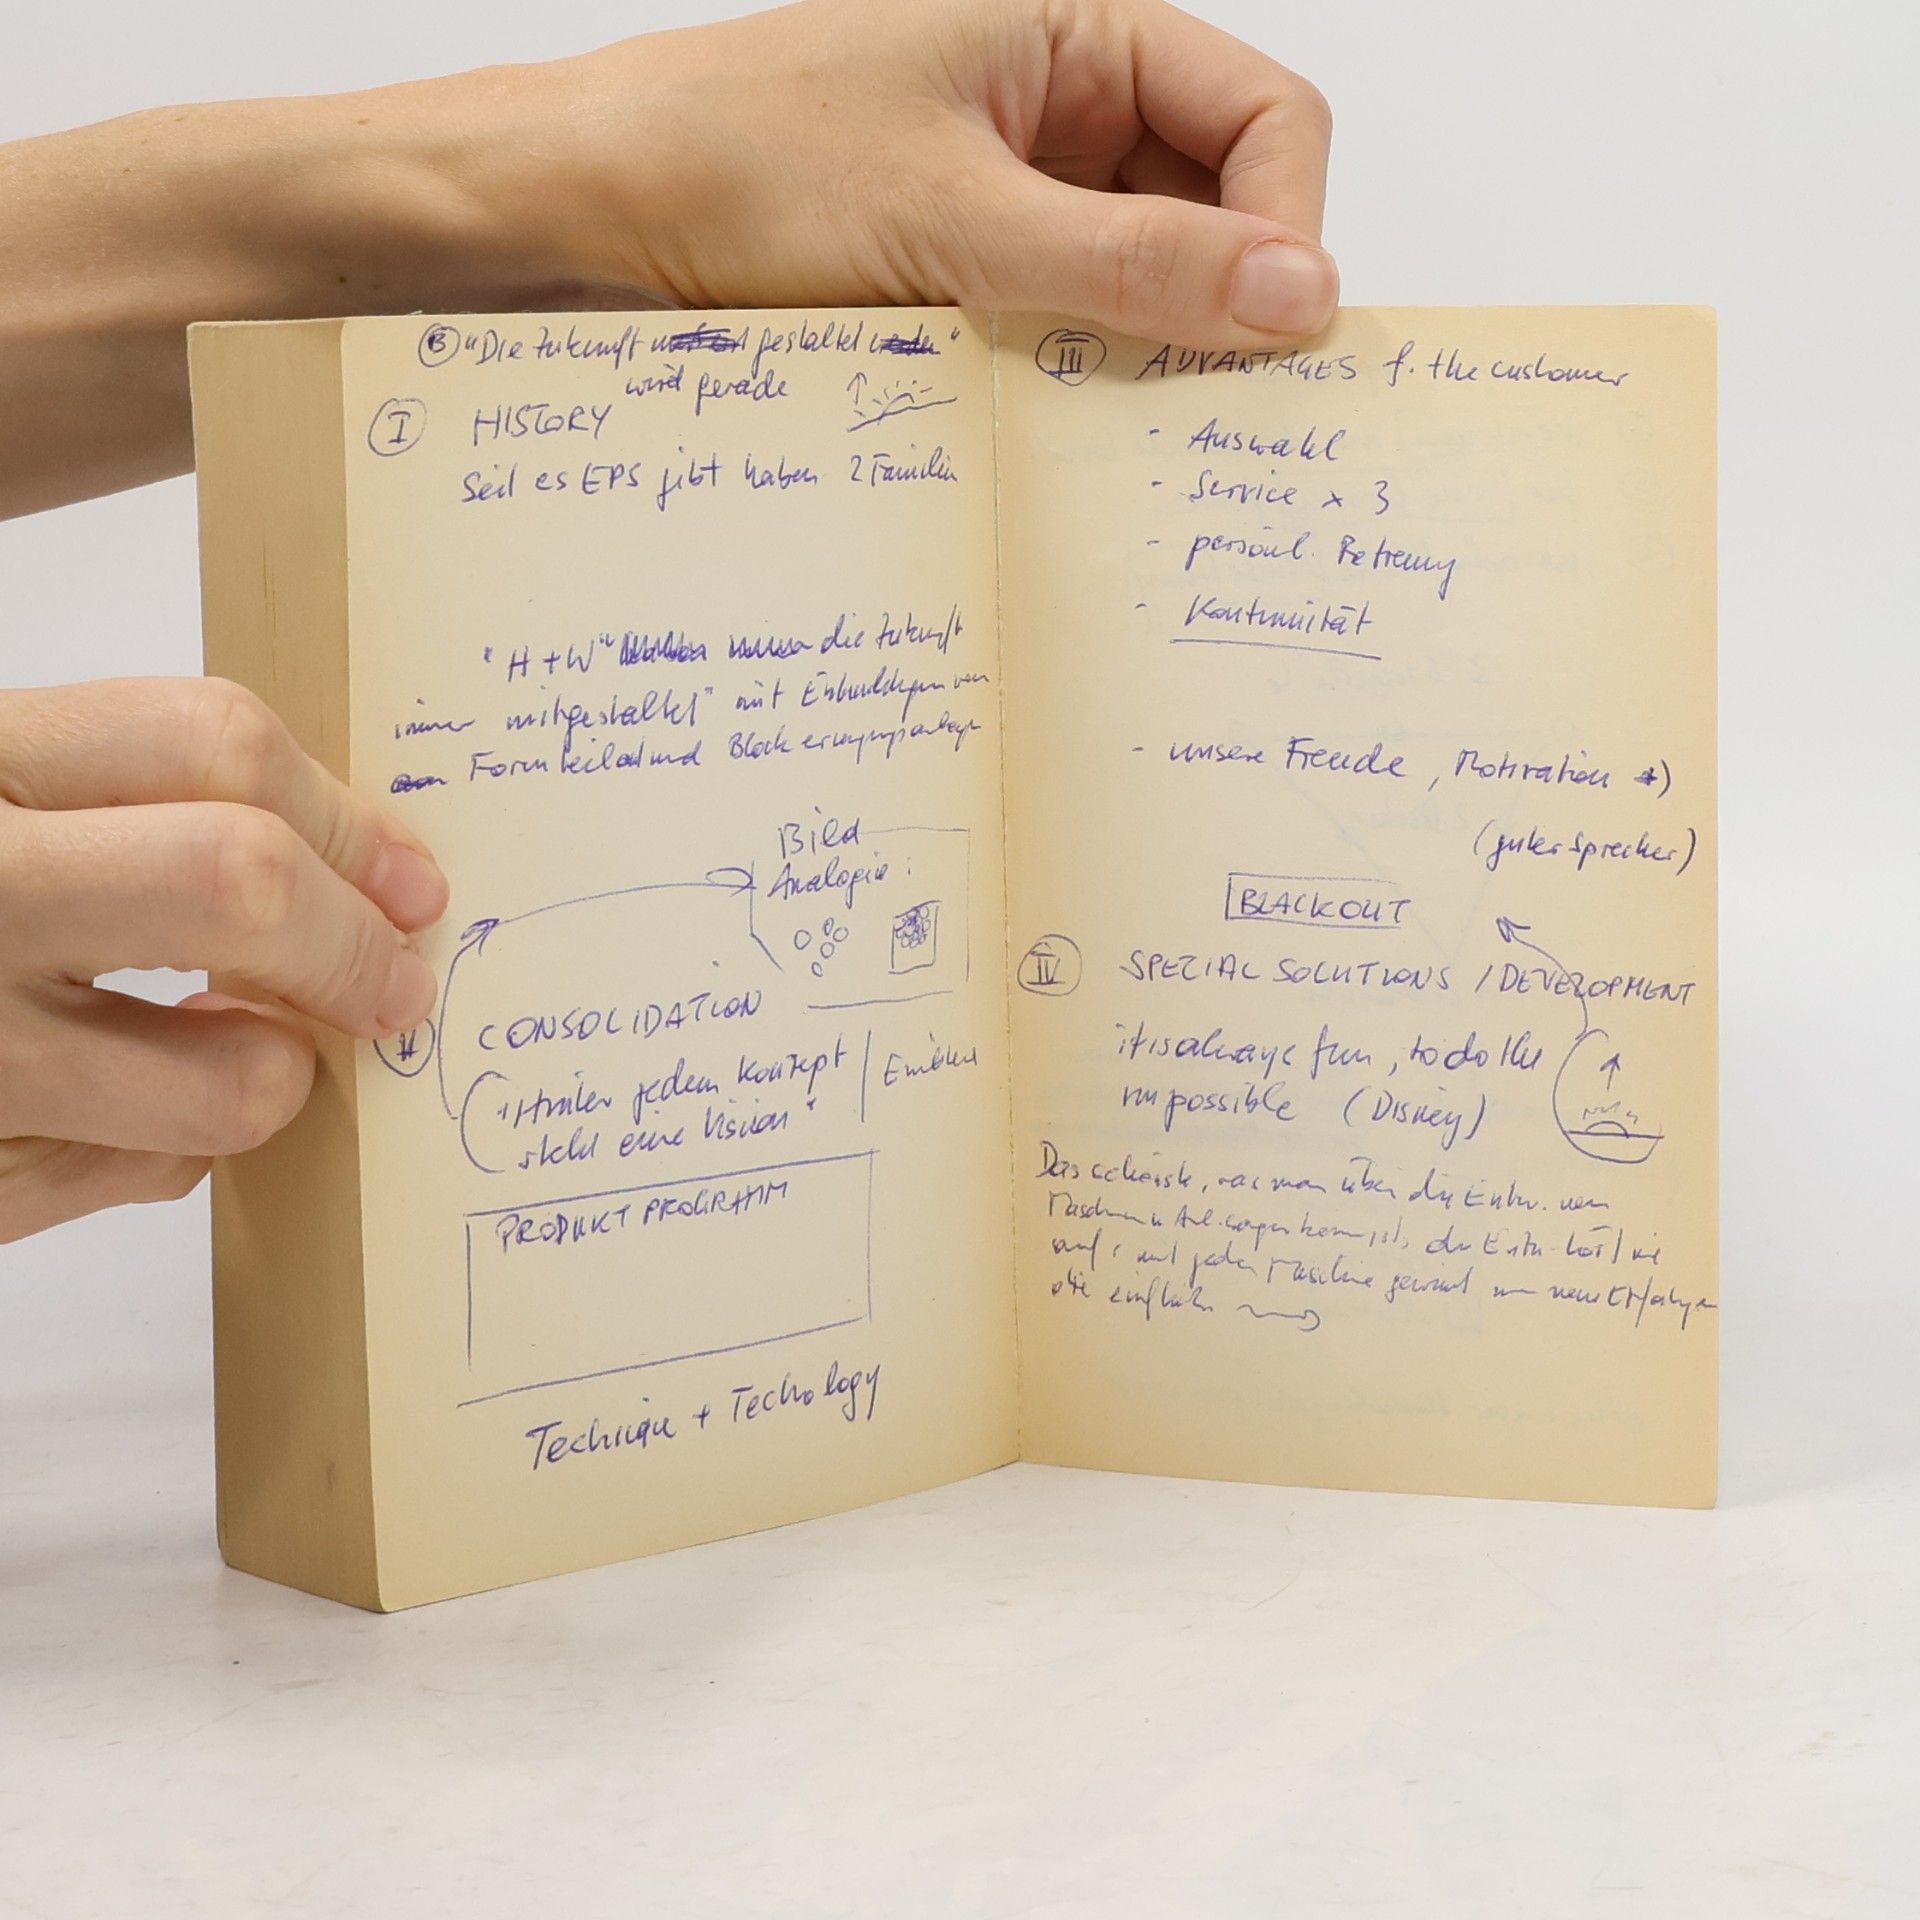 B "Die Zukunft gestaltet "
wird gerade
I HISTORY
Seit es EPS gibt haben 2 Familien
"H + W" die Zukunft
immer mitgestaltet" mit Entwicklungen von
Formteil und Block
Bild
Analogie:
II CONSOLIDATION
"Hinter jedem Konzept
steht eine Vision"
PRODUKT PROGRAMM
Technique + Technology
III ADVANTAGES f. the customer
- Auswahl
- Service x 3
- persönl. Betreuung
- Kontinuität
- unsere Freude, Motivation
(guter Sprecher)
BLACKOUT
IV SPEZIAL SOLUTIONS / DEVELOPMENT
it is always fun, to do the
impossible (Disney)
Das schönste, was man über die Entw. von
Maschinen
auf, mit jeder Maschine gewinnt man neue Erfahrungen
die